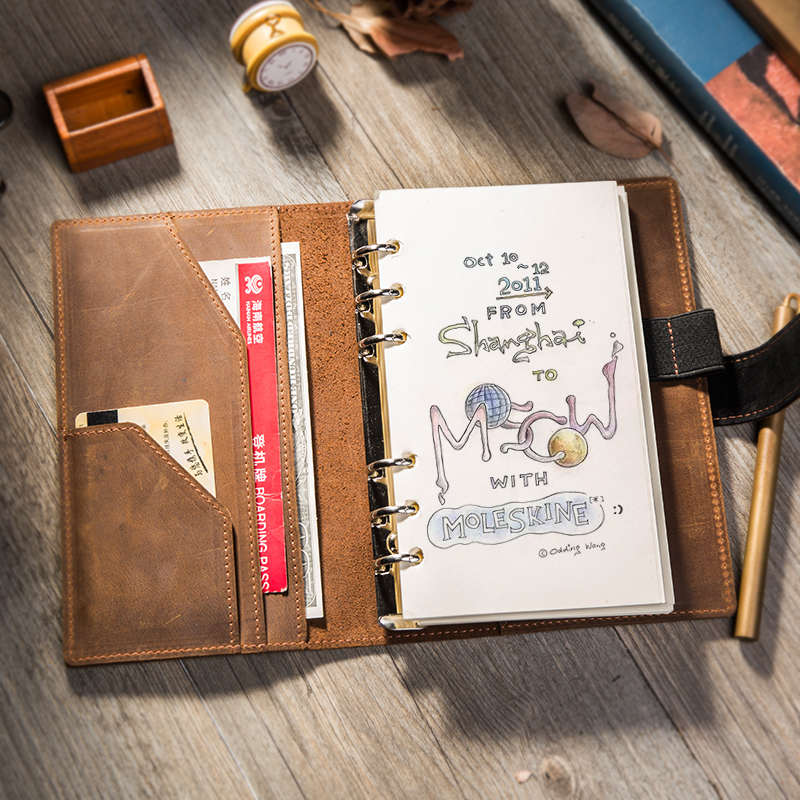 Oct 10
~ 12
2011
FROM
Shanghai
TO
MOCW
WITH
MOLESKINE[*] :)
© Odding Wang
姓名
海南航空
HAINAN AIRLINES
登机牌 BOARDING PASS